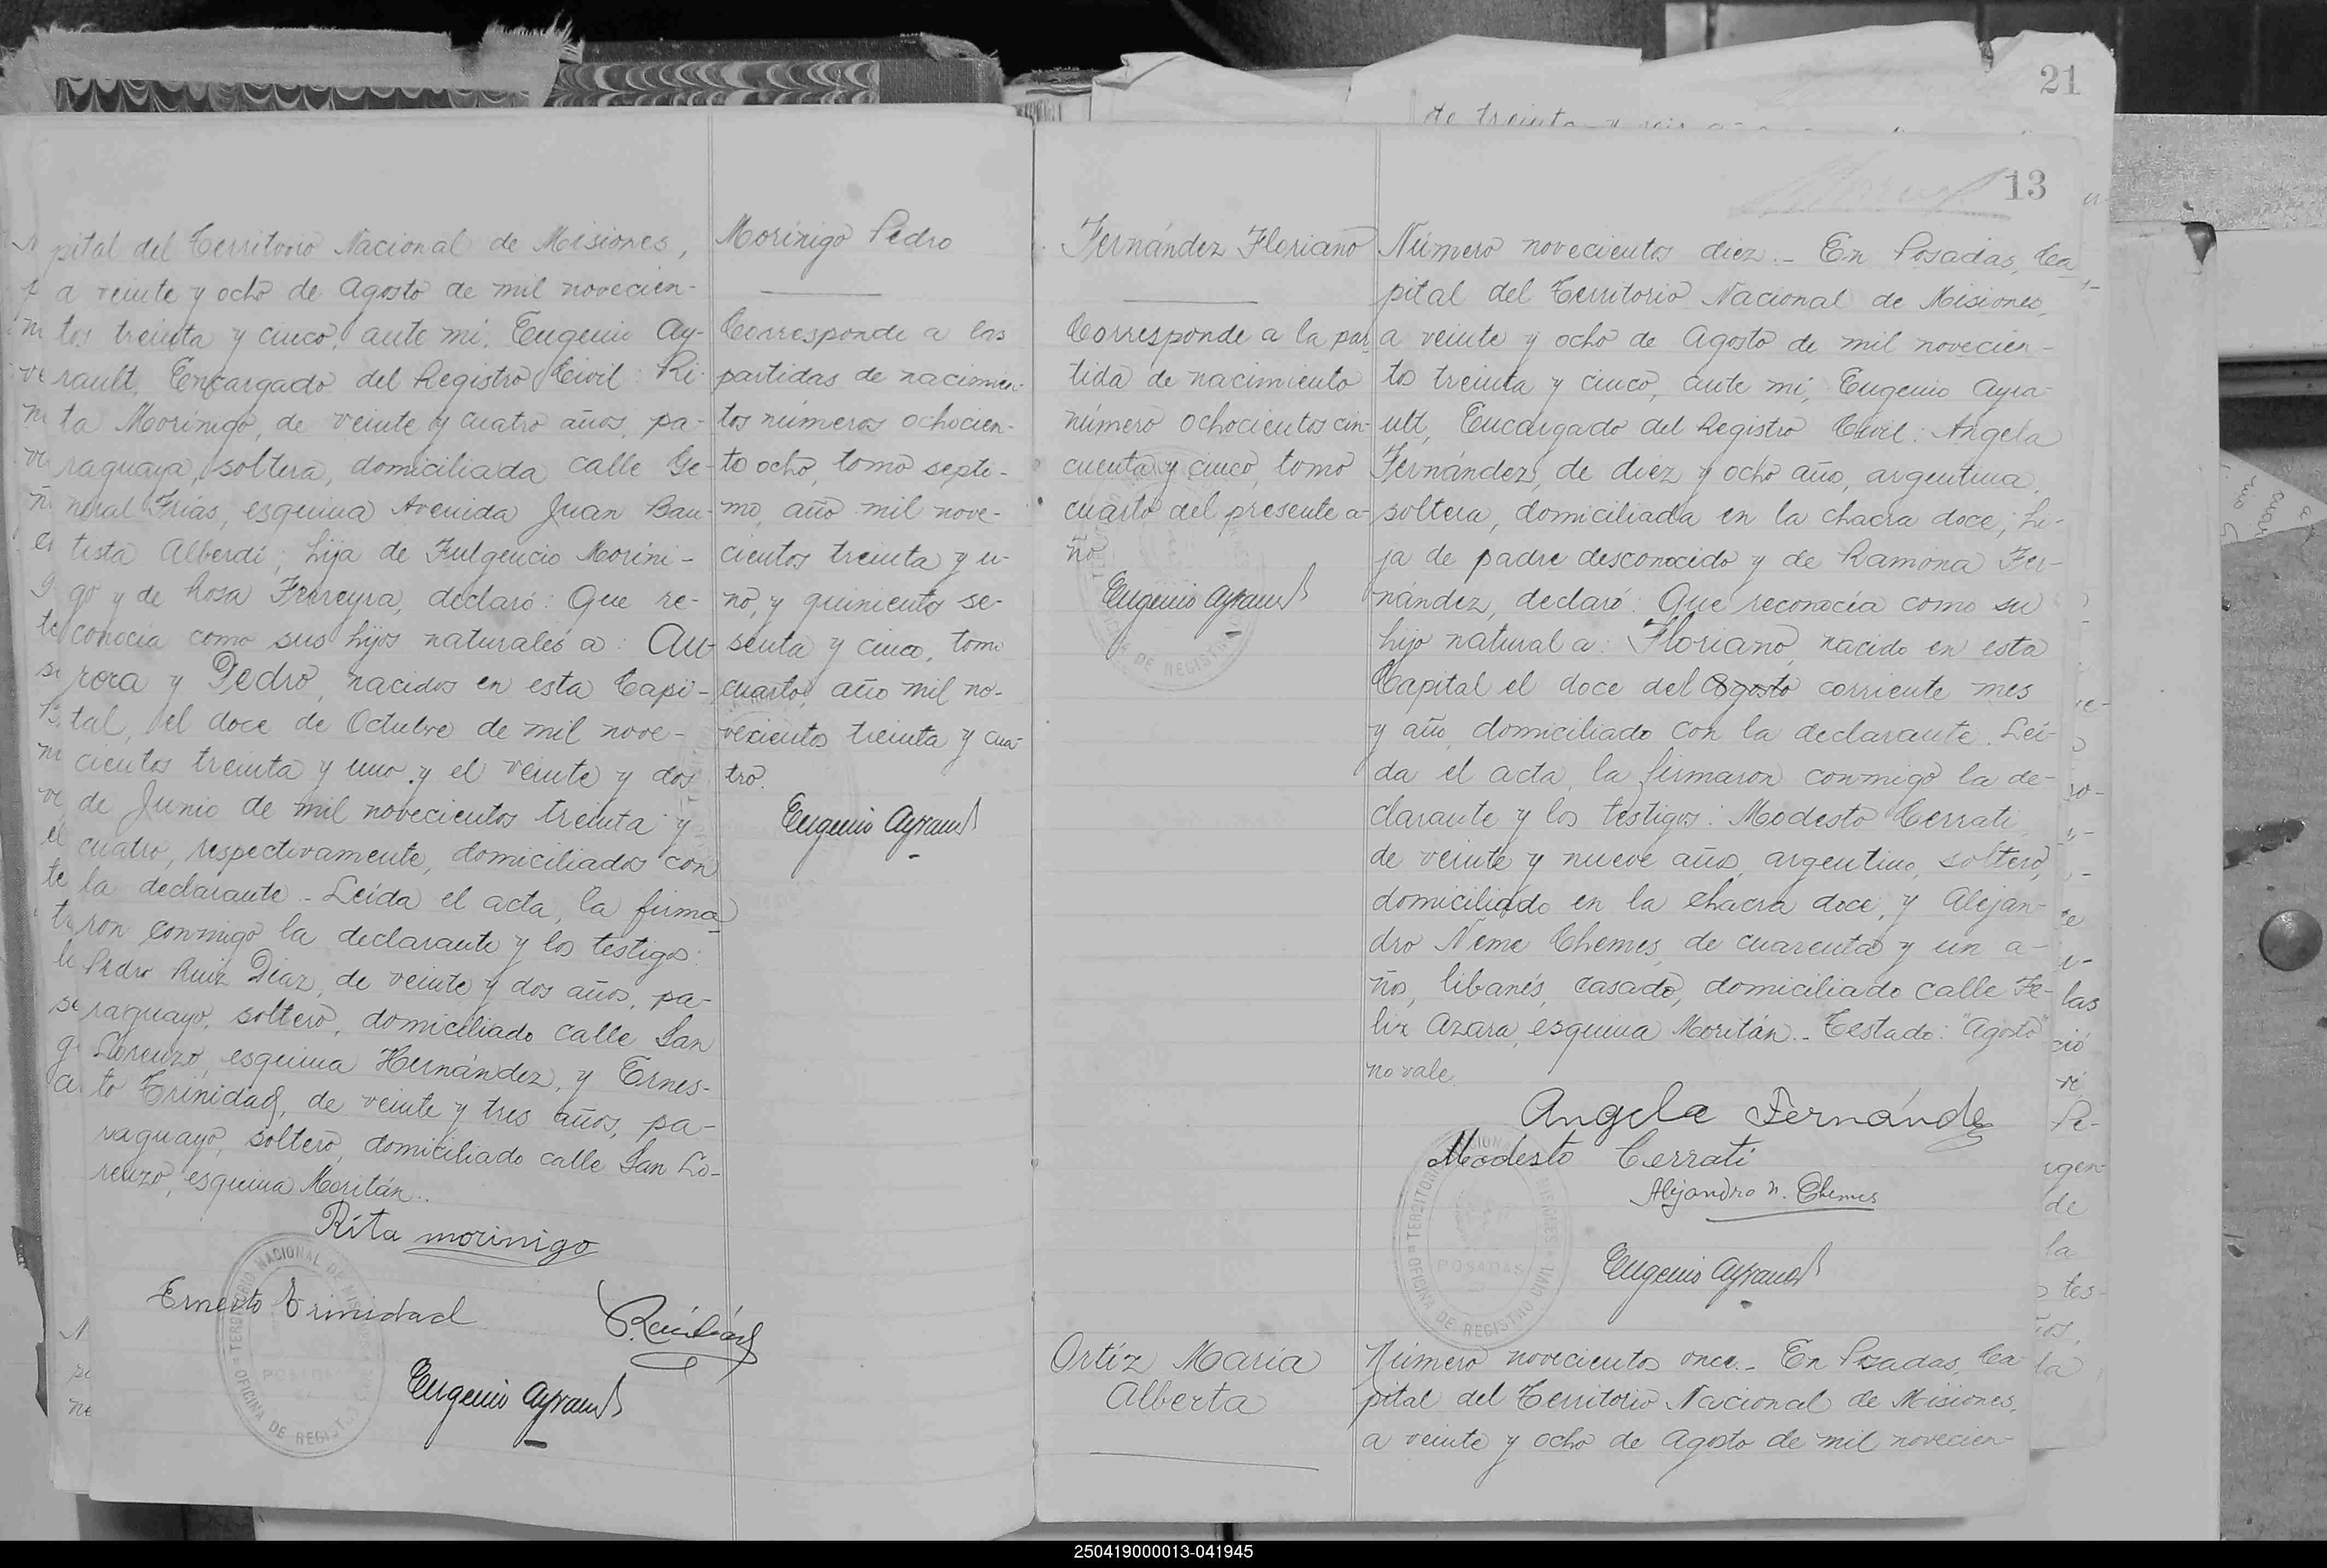 pital del Territorio Nacional de Misiones,
a veinte y ocho de Agosto de mil novecien-
tos treinta y cinco, ante mi, Eugenio Ay-
rault, Encargado del Registro Civil: Ri-
ta Morínigo, de veinte y cuatro años, pa-
raguaya, soltera, domiciliada calle Ge-
neral Frías, esquina Avenida Juan Bau-
tista Alberdi; hija de Fulgencio Moríni-
go y de Rosa Ferreyra, declaró: Que re-
conocía como sus hijos naturales a: Au-
rora y Pedro, nacidos en esta Capi-
tal, el doce de Octubre de mil nove-
cientos treinta y uno y el veinte y dos
de Junio de mil novecientos treinta y
cuatro, respectivamente, domiciliados con
la declarante.- Leída el acta, la firma-
ron conmigo la declarante y los testigos:
Pedro Ruiz Díaz, de veinte y dos años, pa-
raguayo, soltero, domiciliado calle San
Lorenzo, esquina Hernández, y Ernes-
to Trinidad, de veinte y tres años, pa-
raguayo, soltero, domiciliado calle San Lo-
renzo, esquina Moritán.-
Rita morinigo
Ernesto Trinidad
Eugenio Ayrault
TERRITORIO NACIONAL DE MISIONES
POSADAS
OFICINA DE REGISTRO CIVIL
Morínigo Pedro
Corresponde a las
partidas de nacimien-
tos números ochocien-
to ocho, tomo septi-
mo, año mil nove-
cientos treinta y u-
no, y quinientos se-
senta y cinco, tomo
cuarto, año mil no-
vecientos treinta y cua-
tro.
Eugenio Ayrault
Fernández Floriano
Corresponde a la par-
tida de nacimiento
número ochocientos cin-
cuenta y cinco, tomo
cuarto del presente a-
ño
Eugenio Ayrault
DE REGISTRO
21
de treinta y seis
13
Número novecientos diez.- En Posadas, Ca
pital del Territorio Nacional de Misiones,
a veinte y ocho de Agosto de mil novecien-
tos treinta y cinco, ante mi, Eugenio Ayra-
ult, Encargado del Registro Civil: Angela
Fernández, de diez y ocho año, argentina,
soltera, domiciliada en la chacra doce; hi-
ja de padre desconocido y de Ramona Fer-
nández, declaró: Que reconocía como su
hijo natural a: Floriano, nacido en esta
Capital el doce del Agosto corriente mes
y año, domiciliado con la declarante. Leí-
da el acta, la firmaron conmigo la de-
clarante y los testigos: Modesto Cerrati,
de veinte y nueve años, argentino, soltero,
domiciliado en la chacra doce, y Alejan-
dro Neme Chemes, de cuarenta y un a-
ños, libanés, casado, domiciliado calle Fe-
lix Azara, esquina Moritán.- Testado: "Agosto"
no vale.
Angela Fernández
Modesto Cerrati
Alejandro N. Chemes
Eugenio Ayrault
TERRITORIO NACIONAL MISIONES
POSADAS
OFICINA DE REGISTRO CIVIL
Ortíz María
Alberta
Número novecientos once.- En Posadas, Ca
pital del Territorio Nacional de Misiones,
a veinte y ocho de Agosto de mil novecien-
250419000013-041945